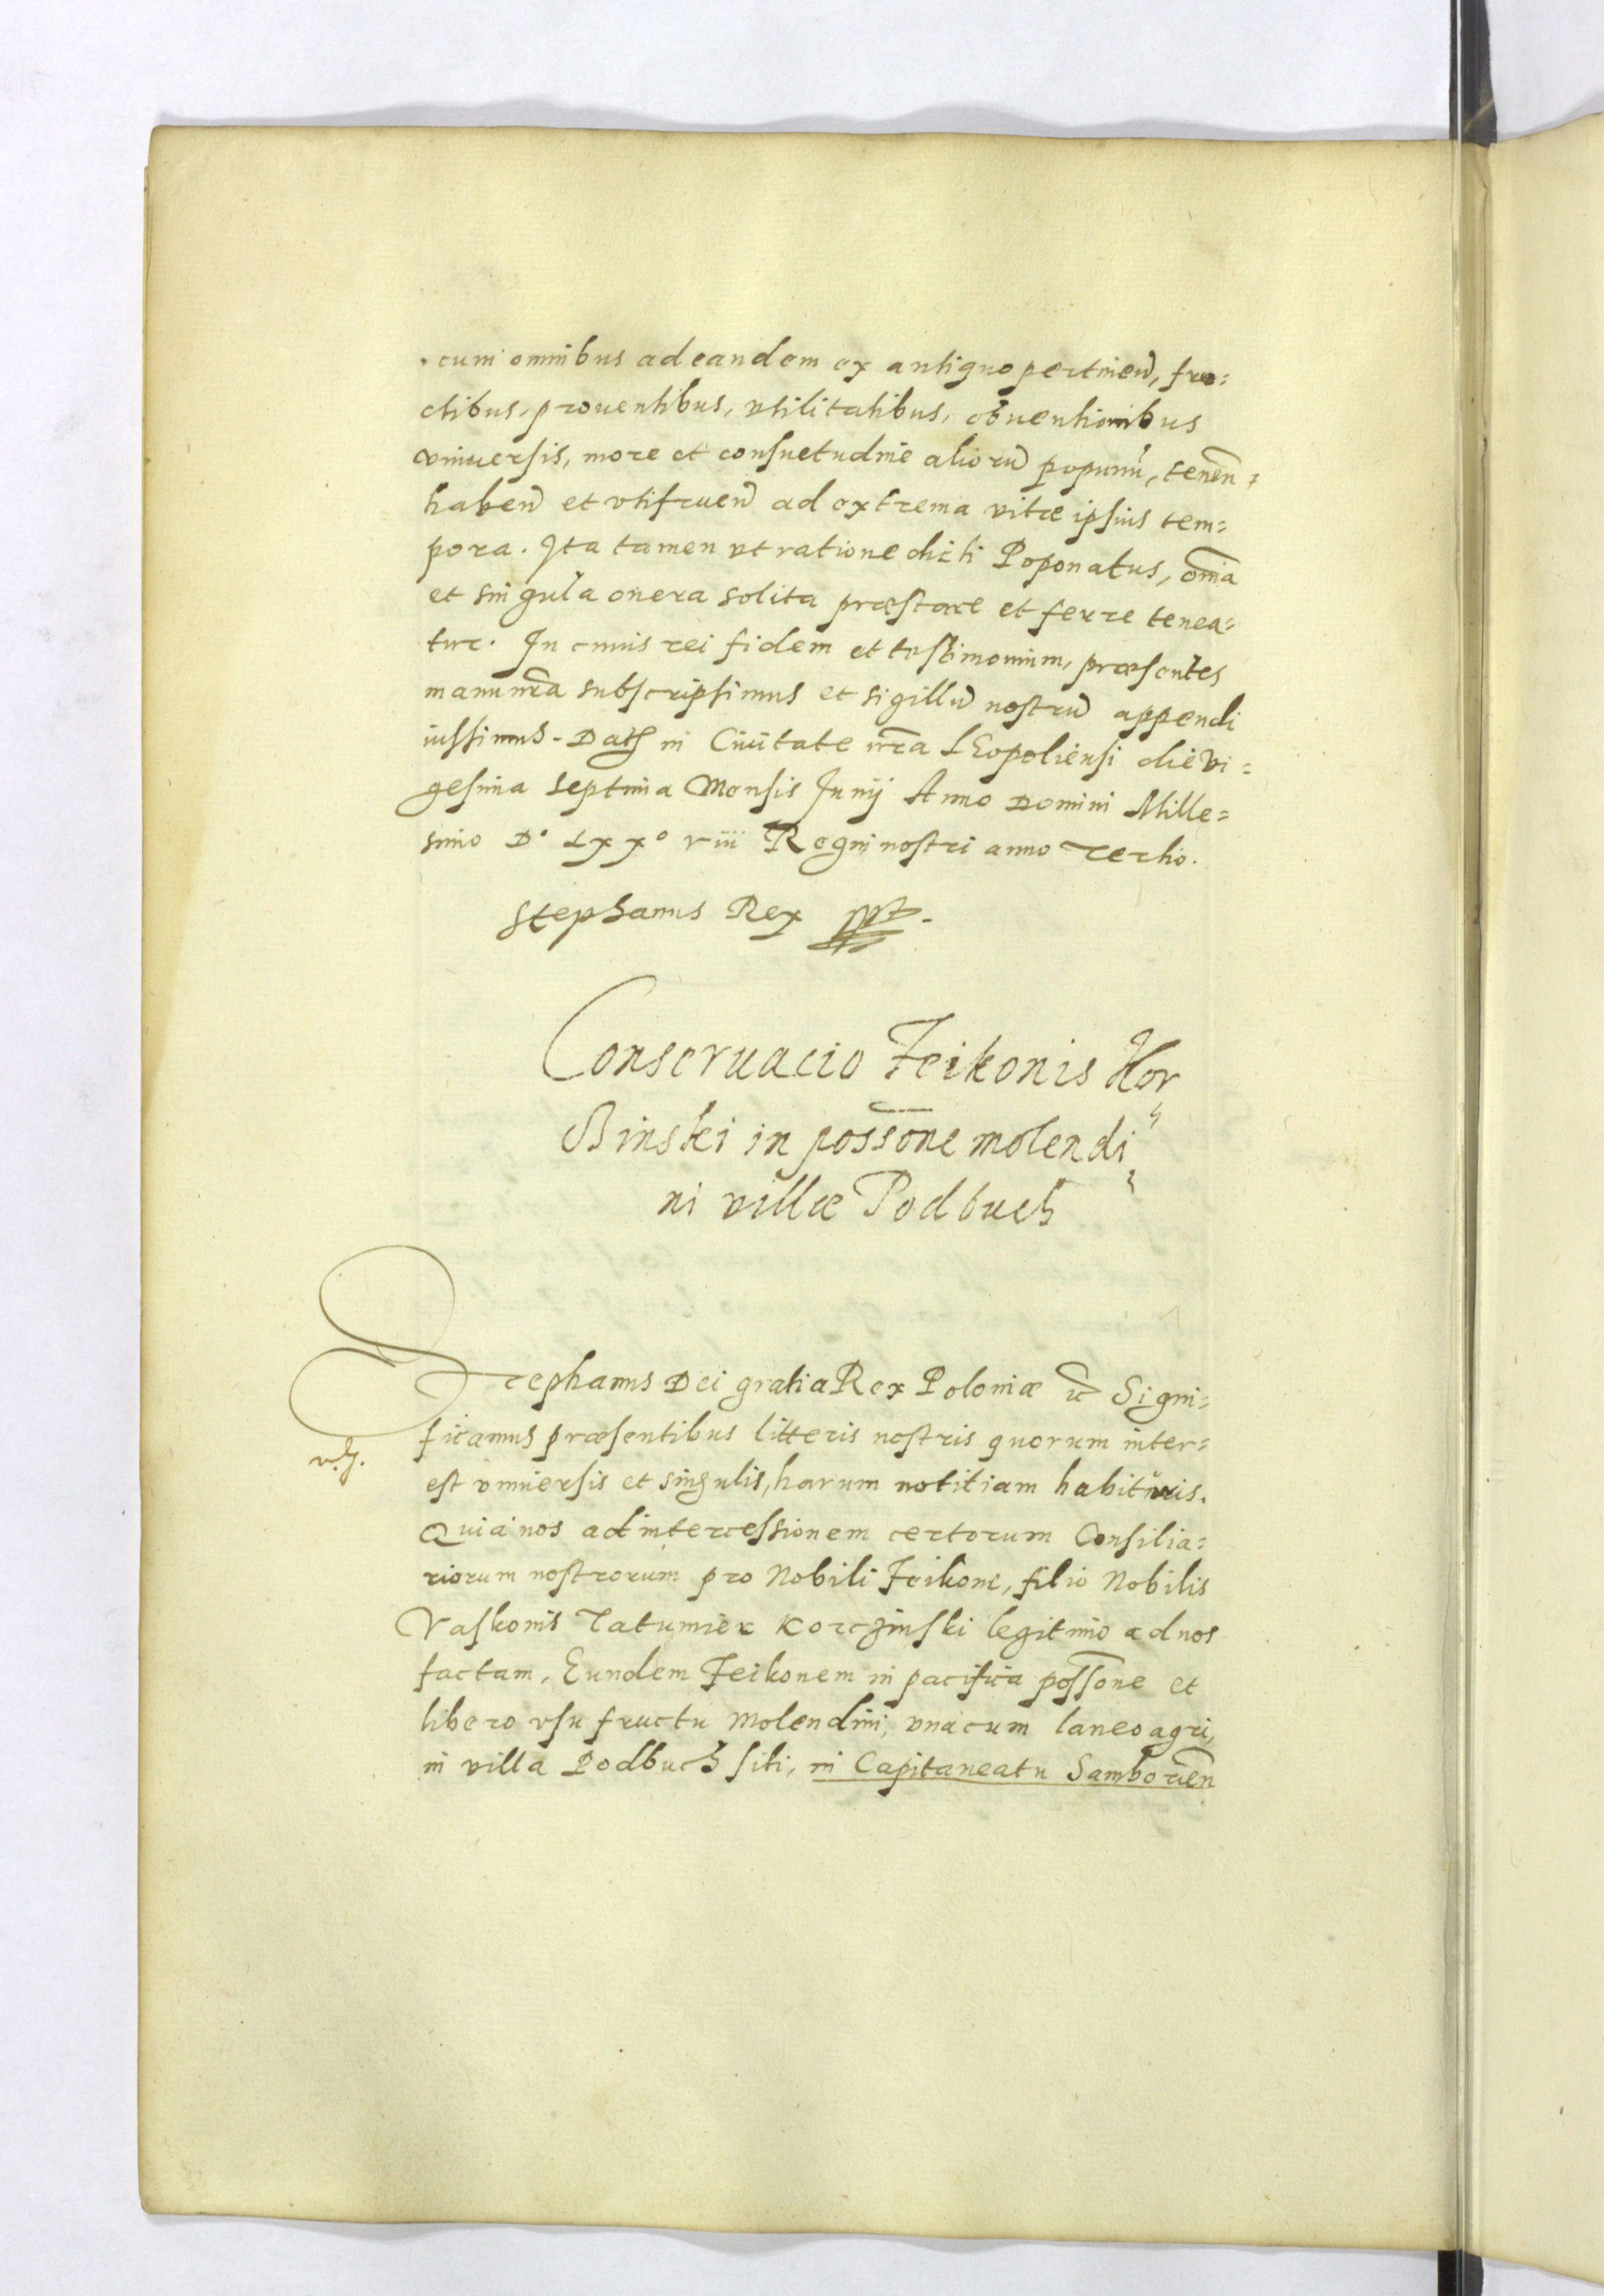 cum omnibus ad eandem ex antiquo pertinen̄, fru=
ctibus, prouentibus, vtilitatibus, obuentionibus
vniuersis, more et consuetudine aliorū poponū, tenen̄
haben̄ et vtifruen̄ ad extrema vitæ ipsius tem=
pora. Ita tamen vt ratione dicti Poponatus, om̄ia
et singula onera solita præstare et ferre tenea=
tur. In cuius rei fidem et testimonium, præsentes
manu nr̄a subscripsimus et sigillū nostrū appendi
iussimus. Dat in Ciuitate nr̄a LEopoliensi die vi=
gesima septima Mensis Junij Anno Domini Mille=
simo D° Lxx° viii Regni nostri anno Tertio.
Stephanus Rex
Conseruacio Feikonis Kor
Binski in possōne molendi
ni villæ Podbuch
Stephanus Dei gratia Rex Poloniæ ec̄ Signi=
ficamus præsentibus litteris nostris quorum inter=
est vniuersis et singulis, harum notitiam habituris.
Quia nos ad intercessionem certorum Consilia=
riorum nostrorum pro Nobili Feikone, filio Nobilis
Vaskonis Tatumier Korczinski legitimo ad nos
factam, Eundem Feikonem in pacifica possōne et
libero vsu fructu Molendini, vna cum laneo agri,
in villa Podbuch siti, in Capitaneatu Samborien̄